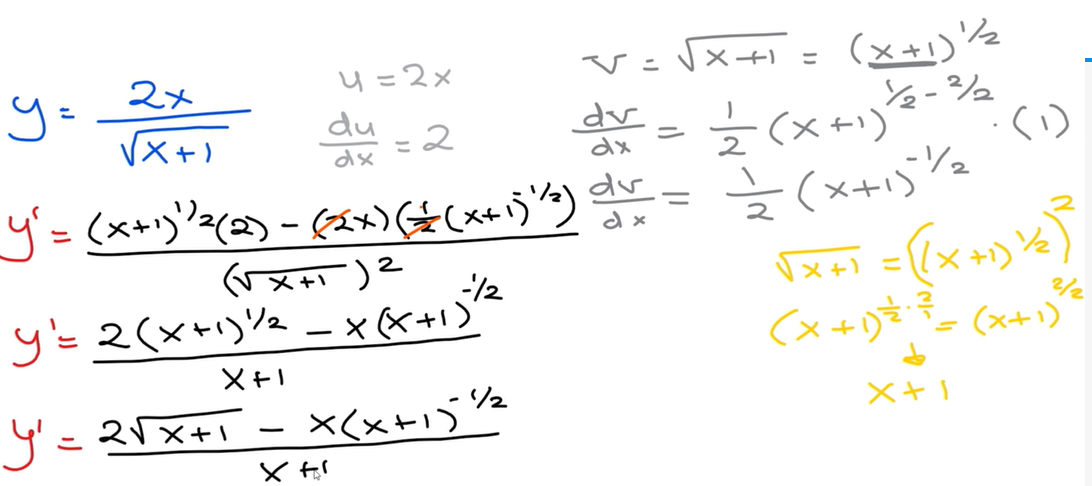 y = 2x / √(x+1)
u = 2x
du/dx = 2
v = √(x+1) = (x+1)^1/2
dv/dx = 1/2 (x+1)^1/2 - 2/2 · (1)
dv/dx = 1/2 (x+1)^-1/2
y' = ((x+1)^1/2 (2) - (2x)(1/2 (x+1)^-1/2)) / (√(x+1))^2
y' = (2(x+1)^1/2 - x(x+1)^-1/2) / x+1
y' = (2√(x+1) - x(x+1)^-1/2) / x+1
√(x+1) = ((x+1)^1/2)^2
(x+1)^1/2 · 2/1 = (x+1)^2/2
↓
x+1